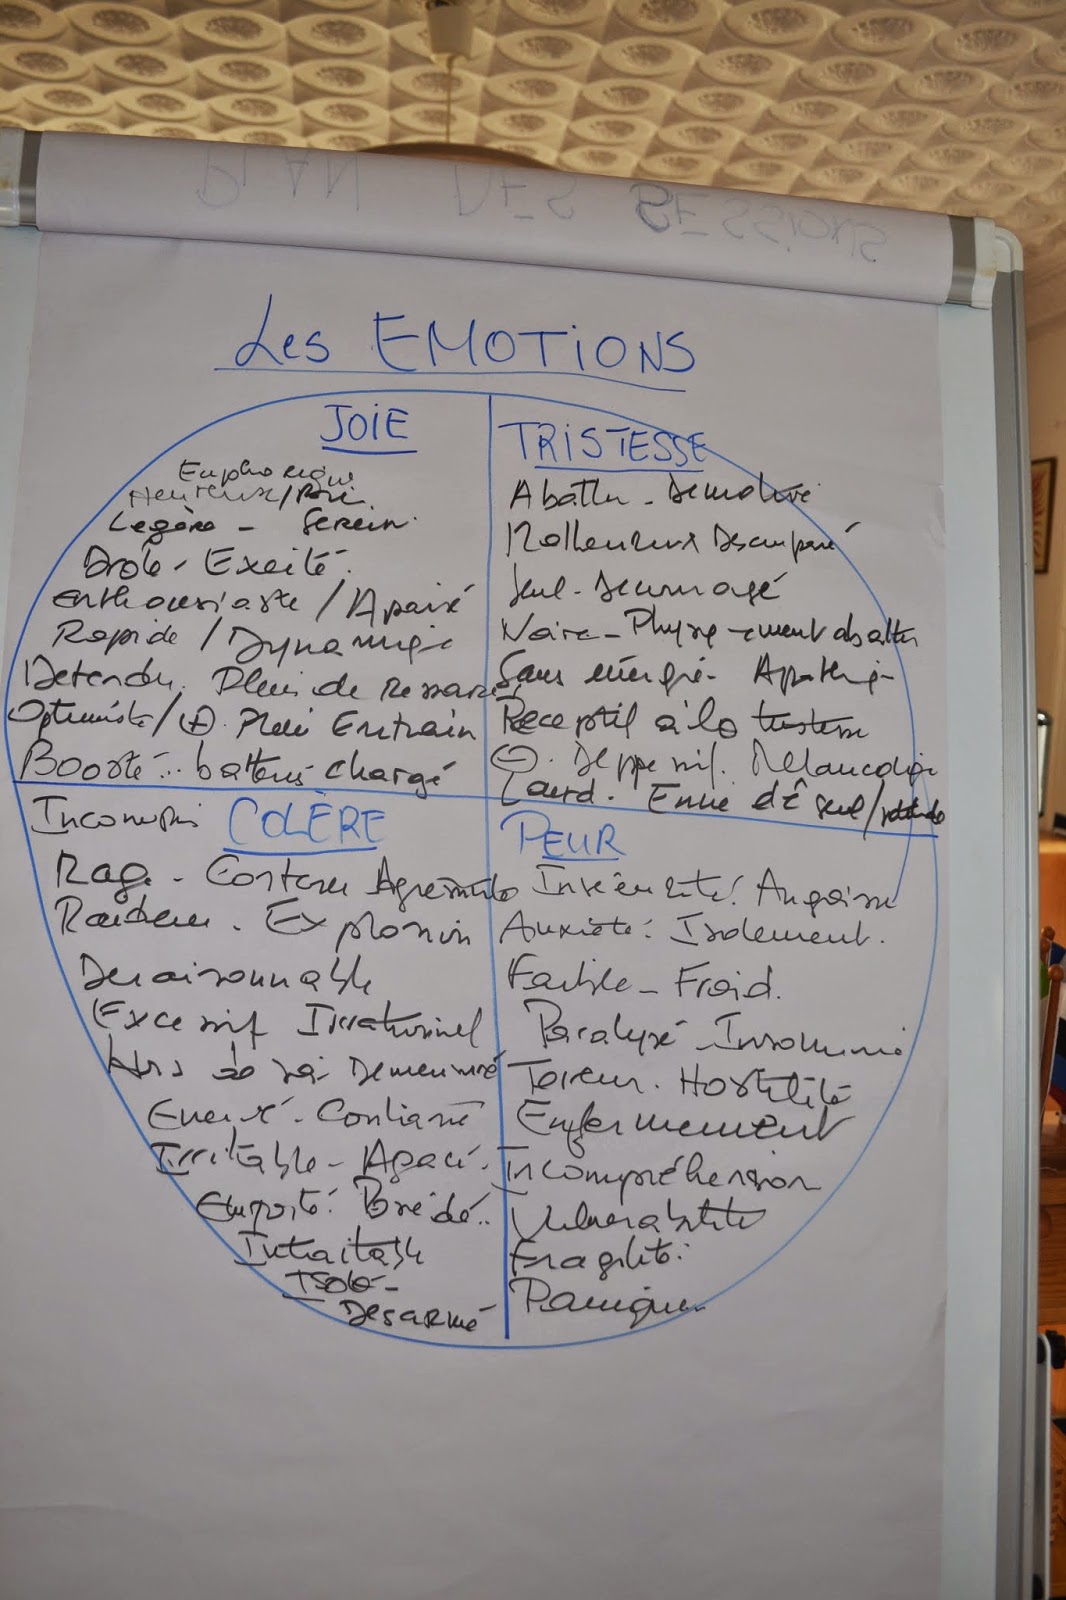 PLAN DES SESSIONS
Les EMOTIONS
JOIE
Euphorique
Heureux/
Légère - Serein
Drole - Excité
Enthousiaste / Apaisé
Rapide / Dynamique
Detendu. Plein de
Optimiste / + Plein Entrain
Boosté... batterie chargé
TRISTESSE
Abattu - Demotivé
Malheureux Desemparé
Seul - Decouragé
Noire - Physiquement abattu
Sans énergie - Apathique
Receptif à la tristesse
- Dépressif. Melancolique
Lourd. Envie d'ê seul/
Incompris COLÈRE
Rage -
Rancoeur. Explosion
Deraisonnable
Excessif Irrationnel
Hors de soi Demesuré
Enervé - Contrarié
Irritable - Agacé.
Emporté. Bridé..
Intraitable
Isolé -
Desarmé
PEUR
Insécurité. Angoisse
Anxiété. Isolement.
Faible - Froid.
Paralysé - Insomnie
Terreur. Hostilité
Enfermement
Incompréhension
Vulnerabilité
Fragilité.
Panique